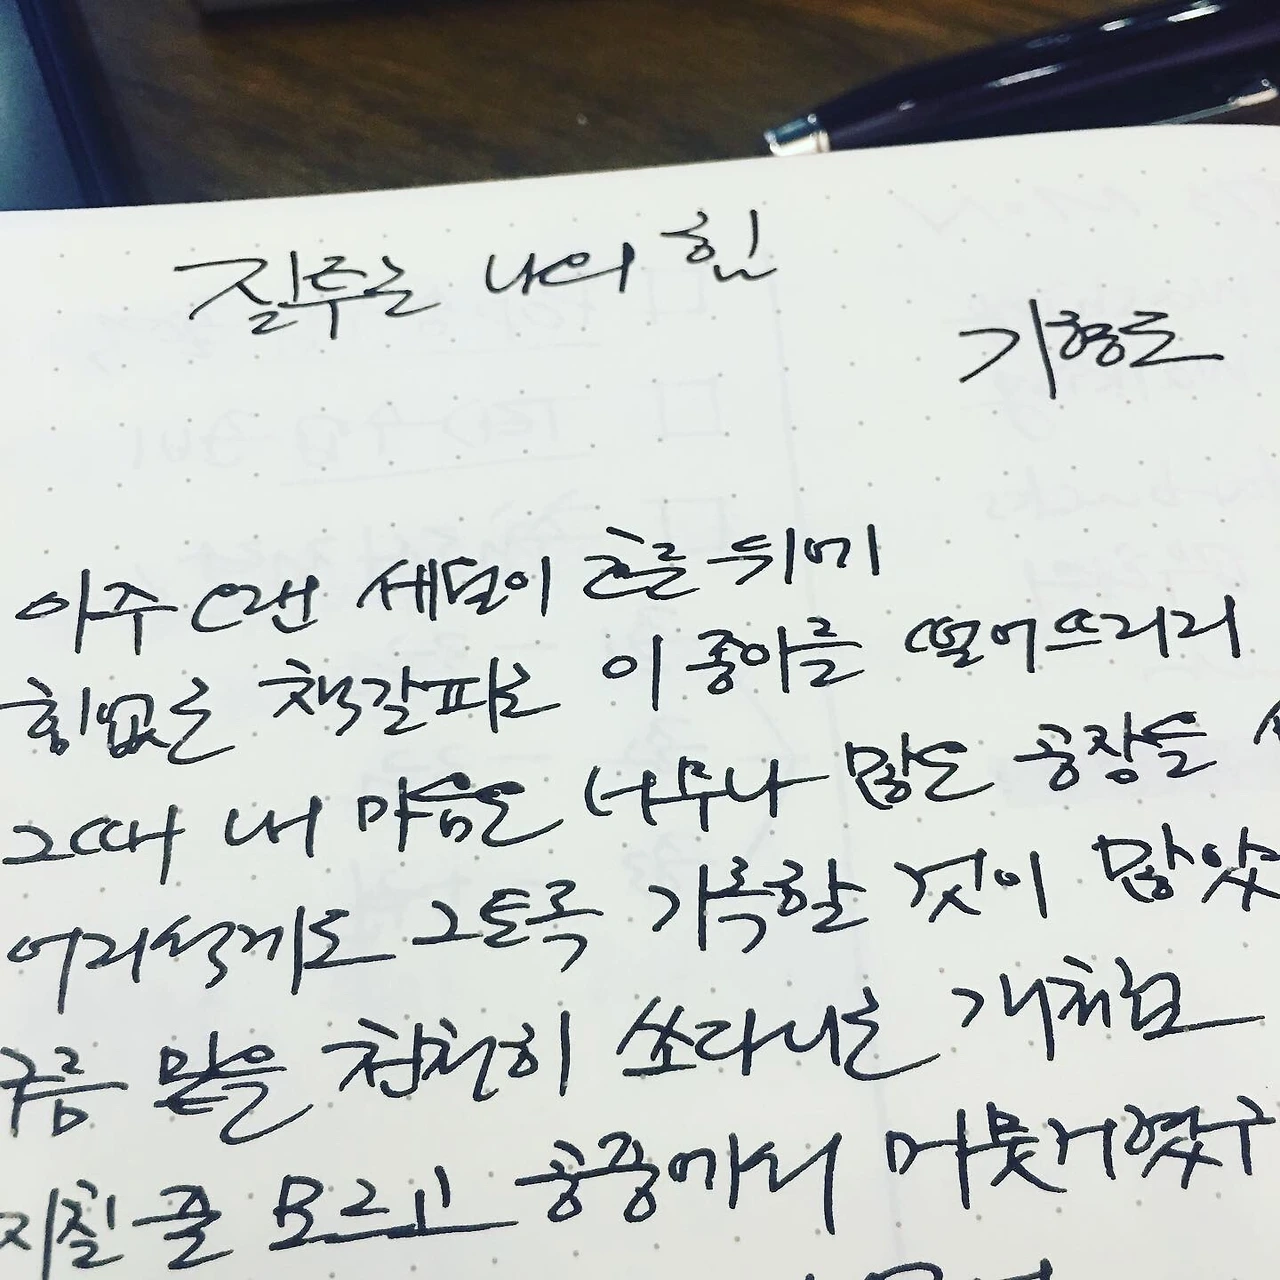 질투는 나의 힘
기형도
아주 오랜 세월이 흐른 뒤에
힘없는 책갈피는 이 종이를 떨어뜨리리
그때 내 마음은 너무나 많은 공장을
어리석게도 그토록 기록할 것이 많았
구름 밑을 천천히 쏘다니는 개처럼
지칠 줄 모르고 공중에서 머뭇거렸구